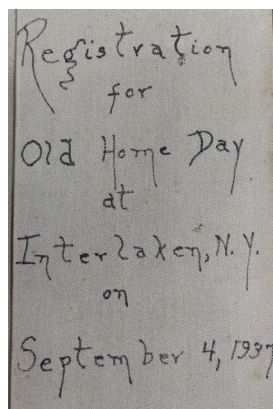 Registration
for
Old Home Day
at
Interlaken, N.Y.
on
September 4, 1937